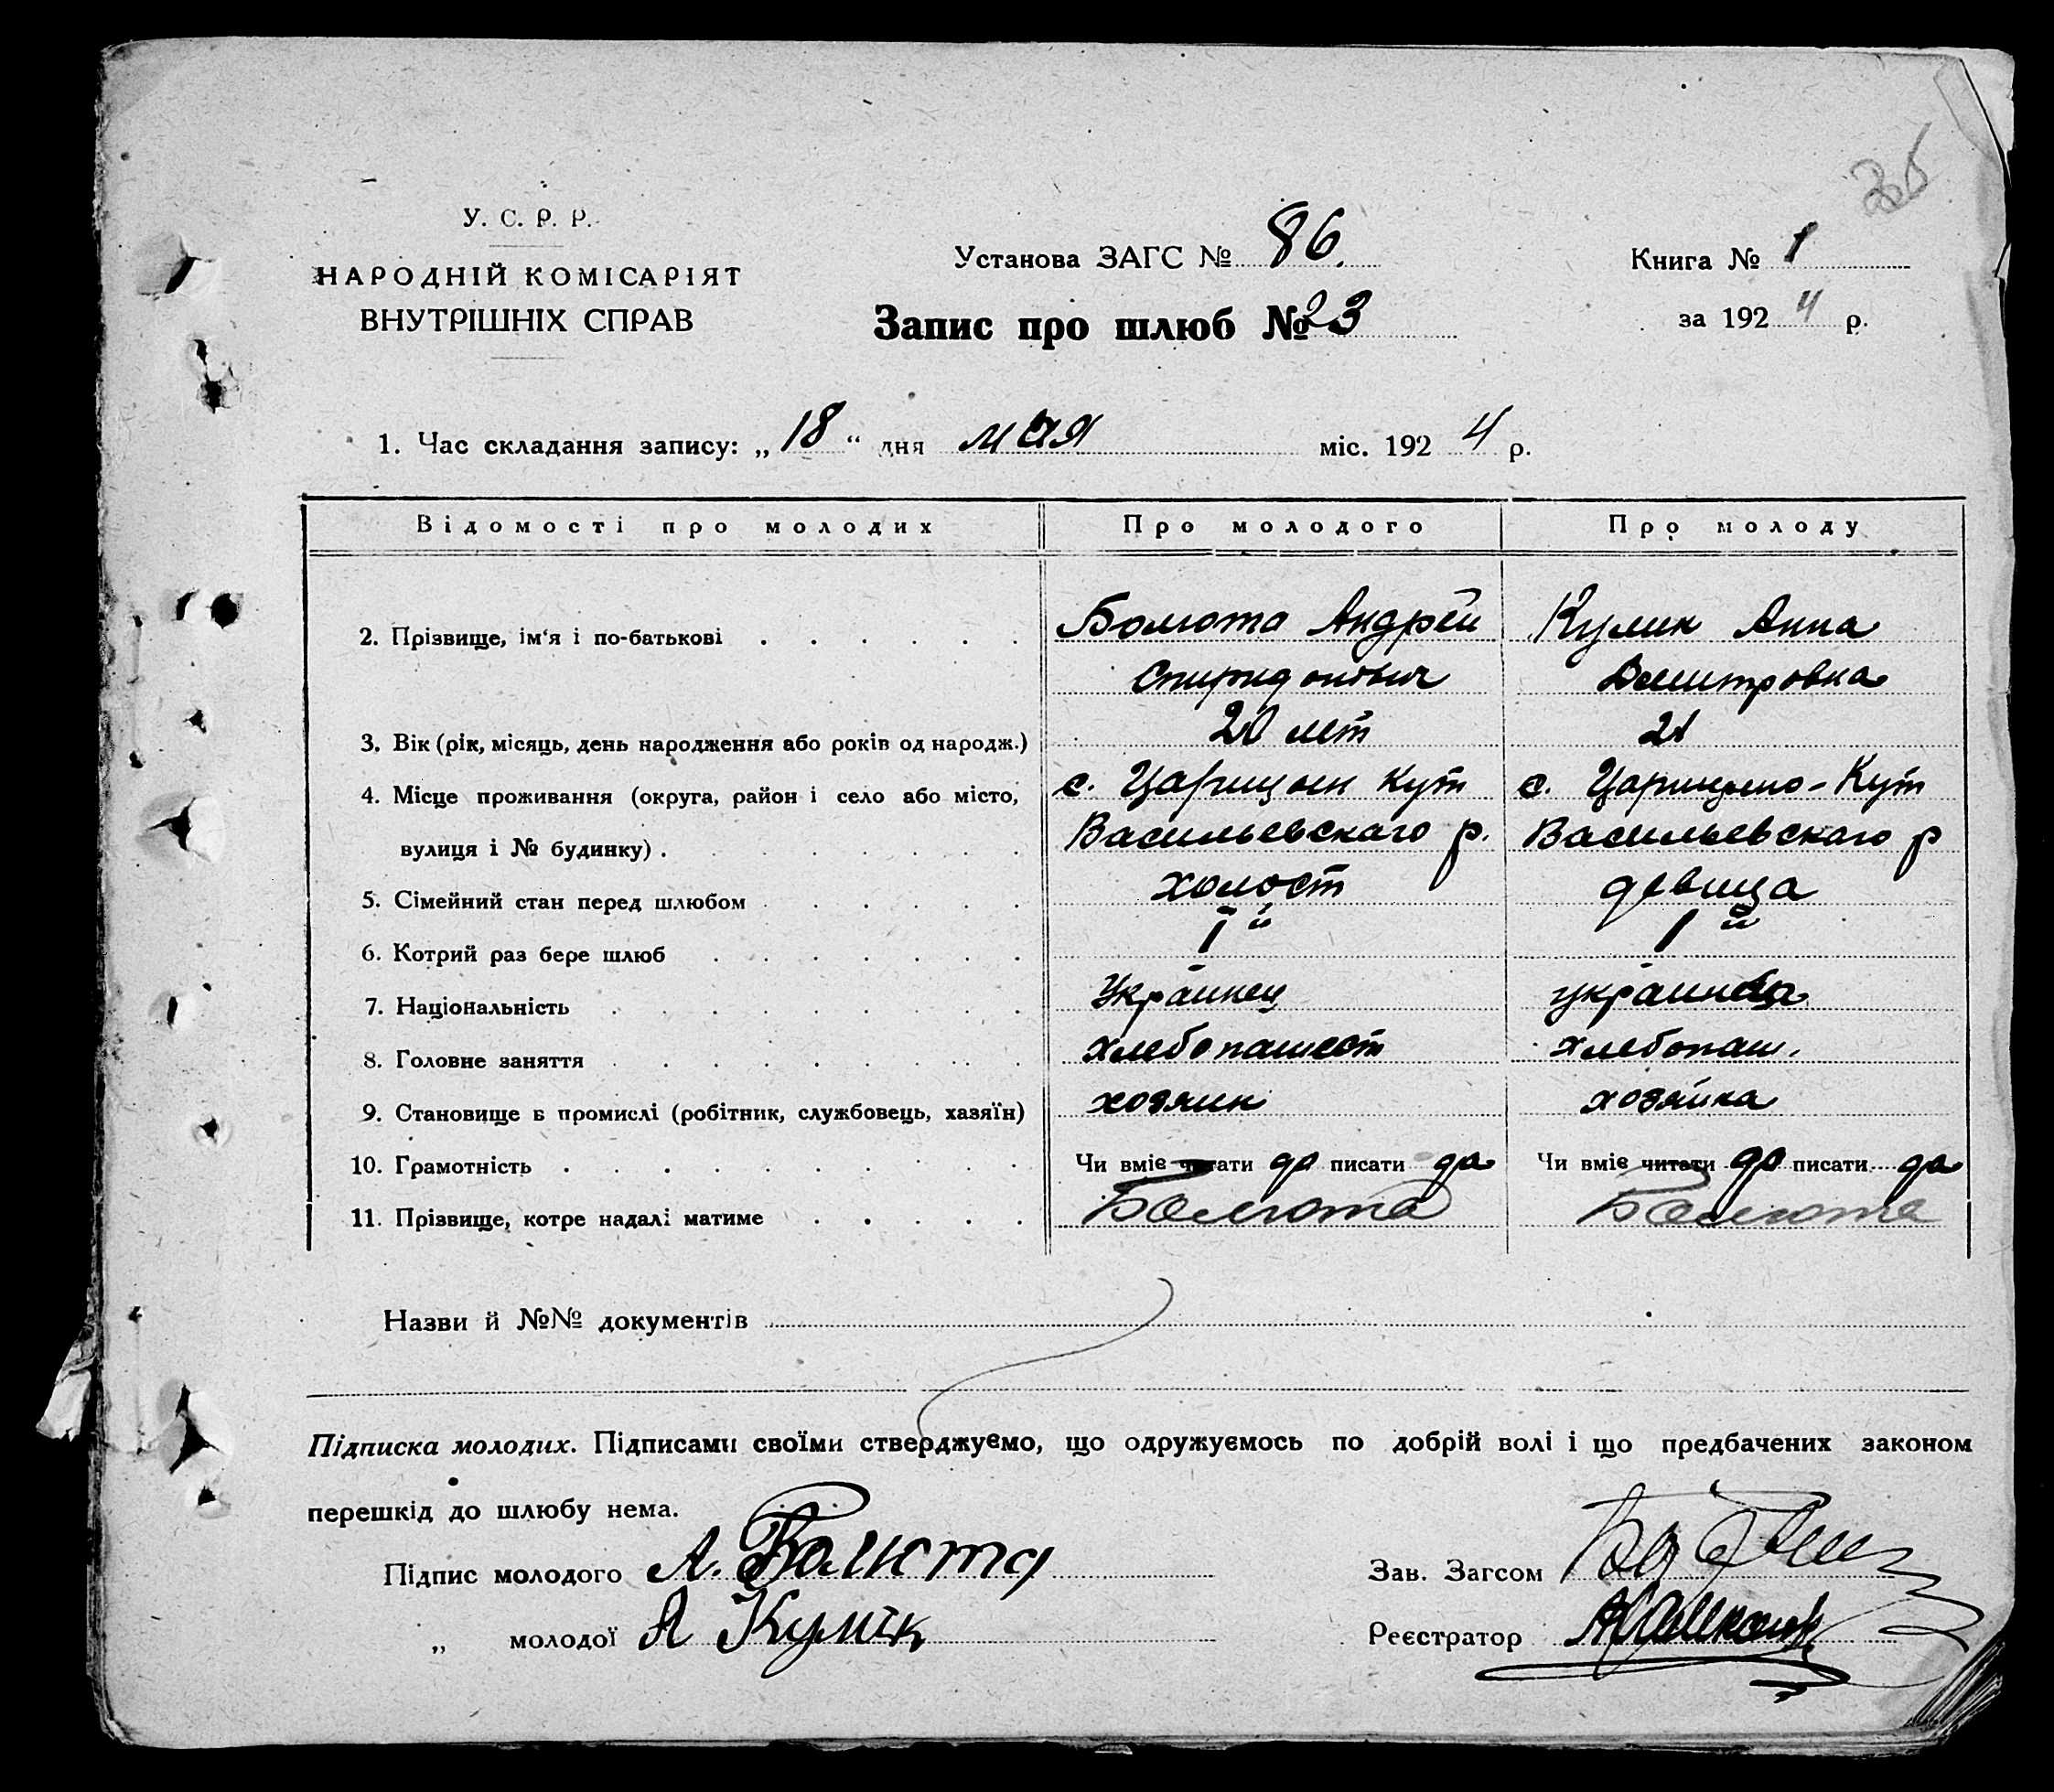 35
У. С. Р. Р.
НАРОДНІЙ КОМІСАРІЯТ
ВНУТРІШНІХ СПРАВ
Установа ЗАГС № 86.
Книга № 1
Запис про шлюб № 23
за 1924 р.
1. Час складання запису: „18“ дня мая міс. 1924 р.
Відомості про молодих Про молодого Про молоду
2. Прізвище, ім'я і по-батькові Болюта Андрей Кулик Анна
Спиридонович Димитровна
3. Вік (рік, місяць, день народження або років од народж.) 20 лет 21
4. Місце проживання (округа, район і село або місто, с. Царицын Кут с. Царицыно-Кут
вулиця і № будинку) Васильевскаго р. Васильевскаго р
5. Сімейний стан перед шлюбом холост девица
6. Котрий раз бере шлюб 1й 1й
7. Національність Украинец украинка
8. Головне заняття хлебопашест хлебопаш.
9. Становище в промислі (робітник, службовець, хазяїн) хозяин хозяйка
10. Грамотність Чи вміє читати да писати да Чи вміє читати да писати да
11. Прізвище, котре надалі матиме Болюта Болюта
Назви й №№ документів
Підписка молодих. Підписами своїми стверджуємо, що одружуємось по добрій волі і що предбачених законом
перешкід до шлюбу нема.
Підпис молодого А. Болюта Зав. Загсом
„ молодої А Кулік Реєстратор